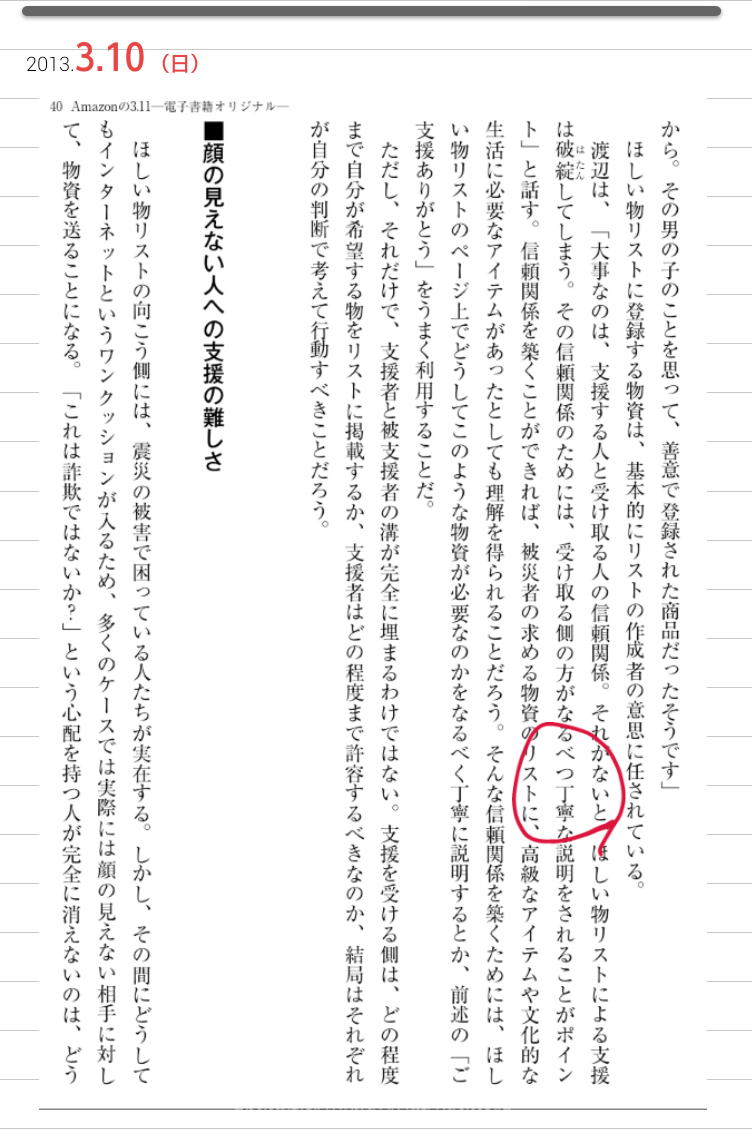 2013.3.10（日）
40 Amazonの3.11―電子書籍オリジナル―
から。その男の子のことを思って、善意で登録された商品だったそうです」
ほしい物リストに登録する物資は、基本的にリストの作成者の意思に任されている。
渡辺は、「大事なのは、支援する人と受け取る人の信頼関係。それがないと、ほしい物リストによる支援
は破綻してしまう。その信頼関係のためには、受け取る側の方がなるべつ丁寧な説明をされることがポイン
はたん
ト」と話す。信頼関係を築くことができれば、被災者の求める物資のリストに、高級なアイテムや文化的な
生活に必要なアイテムがあったとしても理解を得られることだろう。そんな信頼関係を築くためには、ほし
い物リストのページ上でどうしてこのような物資が必要なのかをなるべく丁寧に説明するとか、前述の「ご
支援ありがとう」をうまく利用することだ。
ただし、それだけで、支援者と被支援者の溝が完全に埋まるわけではない。支援を受ける側は、どの程度
まで自分が希望する物をリストに掲載するか、支援者はどの程度まで許容するべきなのか、結局はそれぞれ
が自分の判断で考えて行動すべきことだろう。
■顔の見えない人への支援の難しさ
ほしい物リストの向こう側には、震災の被害で困っている人たちが実在する。しかし、その間にどうして
もインターネットというワンクッションが入るため、多くのケースでは実際には顔の見えない相手に対し
て、物資を送ることになる。「これは詐欺ではないか？」という心配を持つ人が完全に消えないのは、どう